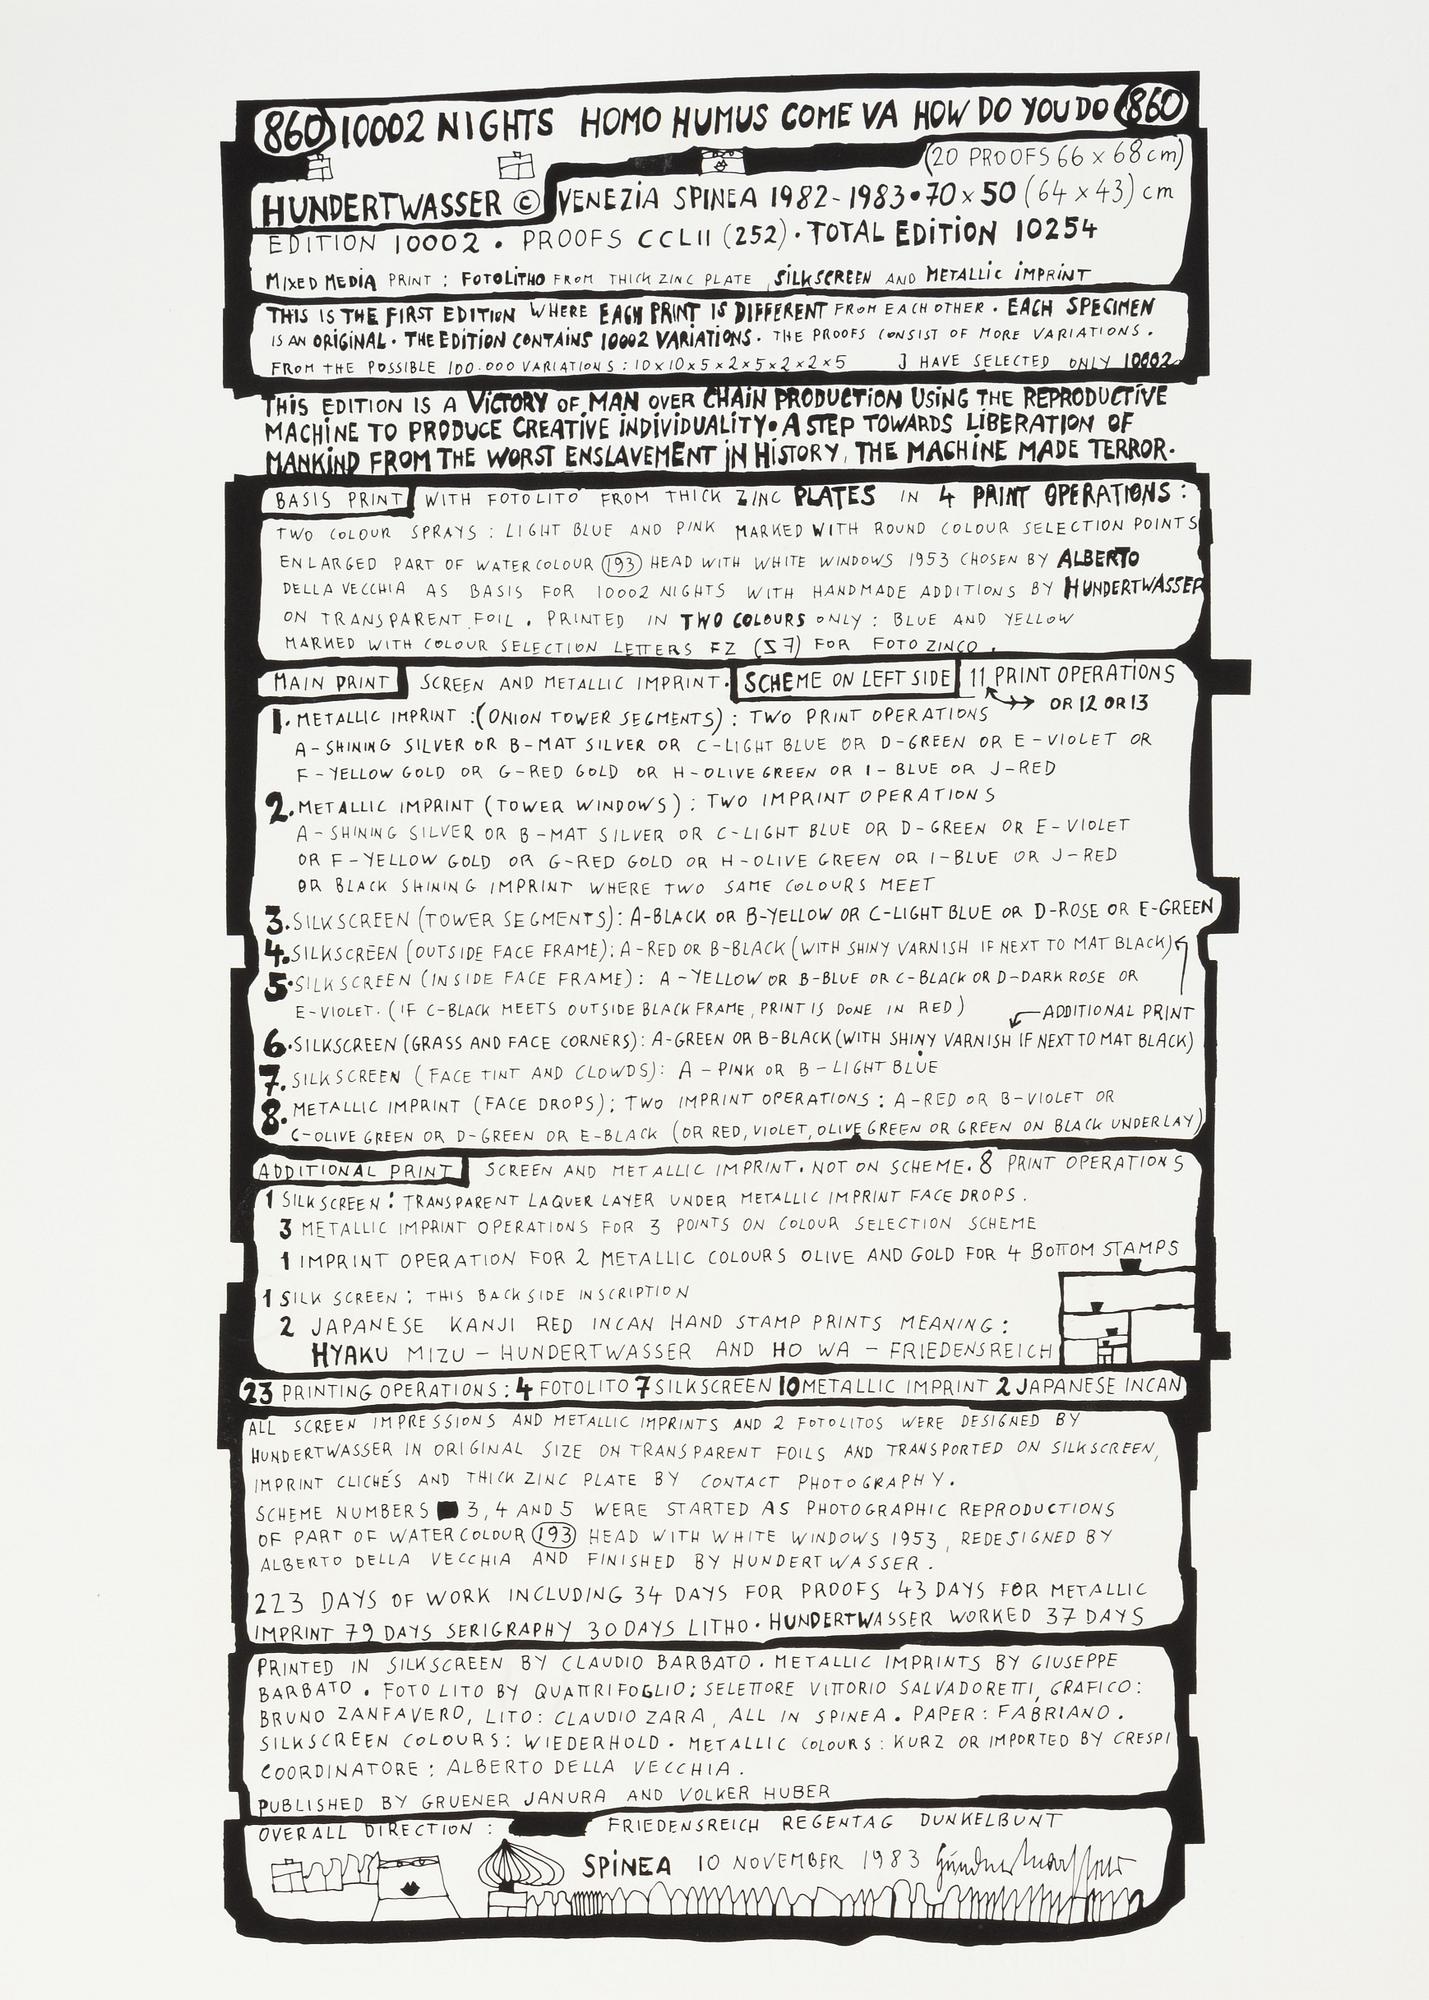 860 10002 NIGHTS HOMO HUMUS COME VA HOW DO YOU DO 860
(20 PROOFS 66 x 68 cm)
HUNDERTWASSER © VENEZIA SPINEA 1982-1983 • 70 x 50 (64 x 43) cm
EDITION 10002 • PROOFS CCLII (252) • TOTAL EDITION 10254
MIXED MEDIA PRINT : FOTOLITHO FROM THICK ZINC PLATE, SILKSCREEN AND METALLIC IMPRINT
THIS IS THE FIRST EDITION WHERE EACH PRINT IS DIFFERENT FROM EACH OTHER • EACH SPECIMEN
IS AN ORIGINAL • THE EDITION CONTAINS 10002 VARIATIONS • THE PROOFS CONSIST OF MORE VARIATIONS .
FROM THE POSSIBLE 100.000 VARIATIONS : 10x10x5x2x5x2x2x5 I HAVE SELECTED ONLY 10002.
THIS EDITION IS A VICTORY OF MAN OVER CHAIN PRODUCTION USING THE REPRODUCTIVE
MACHINE TO PRODUCE CREATIVE INDIVIDUALITY • A STEP TOWARDS LIBERATION OF
MANKIND FROM THE WORST ENSLAVEMENT IN HISTORY, THE MACHINE MADE TERROR.
BASIS PRINT WITH FOTOLITO FROM THICK ZINC PLATES IN 4 PRINT OPERATIONS :
TWO COLOUR SPRAYS : LIGHT BLUE AND PINK MARKED WITH ROUND COLOUR SELECTION POINTS
ENLARGED PART OF WATERCOLOUR (193) HEAD WITH WHITE WINDOWS 1953 CHOSEN BY ALBERTO
DELLA VECCHIA AS BASIS FOR 10002 NIGHTS WITH HANDMADE ADDITIONS BY HUNDERTWASSER
ON TRANSPARENT FOIL . PRINTED IN TWO COLOURS ONLY : BLUE AND YELLOW
MARKED WITH COLOUR SELECTION LETTERS FZ (S7) FOR FOTO ZINCO .
MAIN PRINT SCREEN AND METALLIC IMPRINT • SCHEME ON LEFT SIDE 11 PRINT OPERATIONS
OR 12 OR 13
1. METALLIC IMPRINT : (ONION TOWER SEGMENTS) : TWO PRINT OPERATIONS
A-SHINING SILVER OR B-MAT SILVER OR C-LIGHT BLUE OR D-GREEN OR E-VIOLET OR
F-YELLOW GOLD OR G-RED GOLD OR H-OLIVE GREEN OR I-BLUE OR J-RED
2. METALLIC IMPRINT (TOWER WINDOWS) : TWO IMPRINT OPERATIONS
A-SHINING SILVER OR B-MAT SILVER OR C-LIGHT BLUE OR D-GREEN OR E-VIOLET
OR F-YELLOW GOLD OR G-RED GOLD OR H-OLIVE GREEN OR I-BLUE OR J-RED
OR BLACK SHINING IMPRINT WHERE TWO SAME COLOURS MEET
3. SILKSCREEN (TOWER SEGMENTS) : A-BLACK OR B-YELLOW OR C-LIGHT BLUE OR D-ROSE OR E-GREEN
4. SILKSCREEN (OUTSIDE FACE FRAME) : A-RED OR B-BLACK (WITH SHINY VARNISH IF NEXT TO MAT BLACK)
5. SILKSCREEN (INSIDE FACE FRAME) : A-YELLOW OR B-BLUE OR C-BLACK OR D-DARK ROSE OR
E-VIOLET. (IF C-BLACK MEETS OUTSIDE BLACK FRAME, PRINT IS DONE IN RED)
ADDITIONAL PRINT
6. SILKSCREEN (GRASS AND FACE CORNERS) : A-GREEN OR B-BLACK (WITH SHINY VARNISH IF NEXT TO MAT BLACK)
7. SILKSCREEN (FACE TINT AND CLOWDS) : A-PINK OR B-LIGHT BLUE
8. METALLIC IMPRINT (FACE DROPS) ; TWO IMPRINT OPERATIONS : A-RED OR B-VIOLET OR
C-OLIVE GREEN OR D-GREEN OR E-BLACK (OR RED, VIOLET, OLIVE GREEN OR GREEN ON BLACK UNDERLAY)
ADDITIONAL PRINT SCREEN AND METALLIC IMPRINT . NOT ON SCHEME . 8 PRINT OPERATIONS
1 SILKSCREEN : TRANSPARENT LAQUER LAYER UNDER METALLIC IMPRINT FACE DROPS .
3 METALLIC IMPRINT OPERATIONS FOR 3 POINTS ON COLOUR SELECTION SCHEME
1 IMPRINT OPERATION FOR 2 METALLIC COLOURS OLIVE AND GOLD FOR 4 BOTTOM STAMPS
1 SILK SCREEN : THIS BACKSIDE INSCRIPTION
2 JAPANESE KANJI RED INCAN HAND STAMP PRINTS MEANING :
HYAKU MIZU - HUNDERTWASSER AND HO WA - FRIEDENSREICH
23 PRINTING OPERATIONS : 4 FOTOLITO 7 SILKSCREEN 10 METALLIC IMPRINT 2 JAPANESE INCAN
ALL SCREEN IMPRESSIONS AND METALLIC IMPRINTS AND 2 FOTOLITOS WERE DESIGNED BY
HUNDERTWASSER IN ORIGINAL SIZE ON TRANSPARENT FOILS AND TRANSPORTED ON SILKSCREEN,
IMPRINT CLICHÉS AND THICK ZINC PLATE BY CONTACT PHOTOGRAPHY .
SCHEME NUMBERS 3, 4 AND 5 WERE STARTED AS PHOTOGRAPHIC REPRODUCTIONS
OF PART OF WATERCOLOUR (193) HEAD WITH WHITE WINDOWS 1953, REDESIGNED BY
ALBERTO DELLA VECCHIA AND FINISHED BY HUNDERTWASSER .
223 DAYS OF WORK INCLUDING 34 DAYS FOR PROOFS 43 DAYS FOR METALLIC
IMPRINT 79 DAYS SERIGRAPHY 30 DAYS LITHO • HUNDERTWASSER WORKED 37 DAYS
PRINTED IN SILKSCREEN BY CLAUDIO BARBATO • METALLIC IMPRINTS BY GIUSEPPE
BARBATO • FOTOLITO BY QUATTRIFOGLIO ; SELETTORE VITTORIO SALVADORETTI, GRAFICO :
BRUNO ZANFAVERO, LITO : CLAUDIO ZARA, ALL IN SPINEA • PAPER : FABRIANO .
SILKSCREEN COLOURS : WIEDERHOLD • METALLIC COLOURS : KURZ OR IMPORTED BY CRESPI
COORDINATORE : ALBERTO DELLA VECCHIA .
PUBLISHED BY GRUENER JANURA AND VOLKER HUBER
OVERALL DIRECTION : FRIEDENSREICH REGENTAG DUNKELBUNT
SPINEA 10 NOVEMBER 1983 Hundertwasser